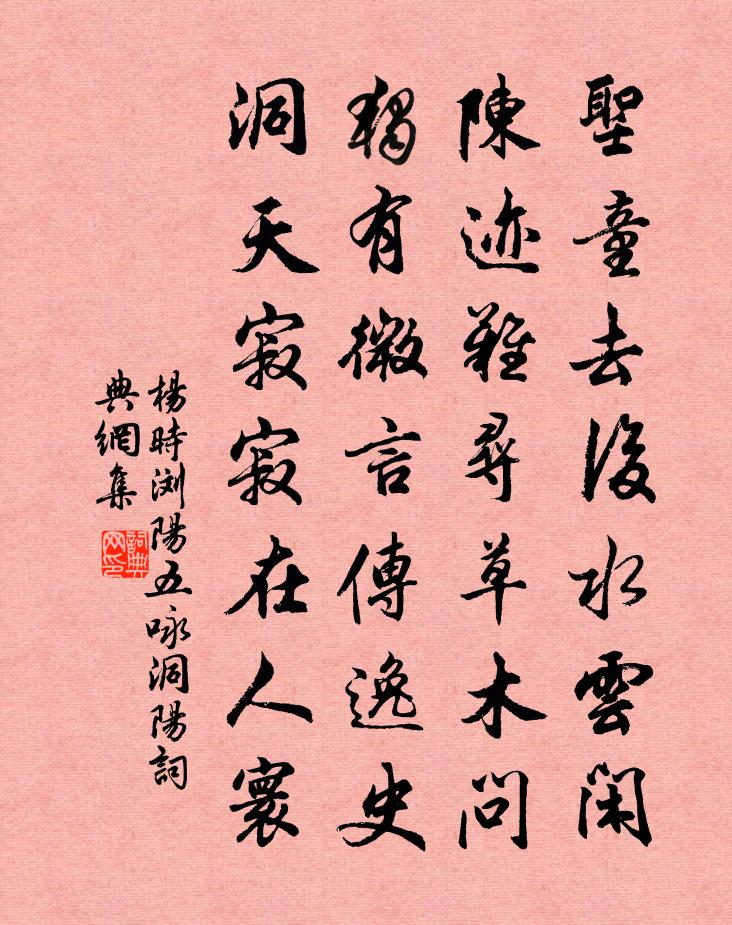 聖童去後水雲閑
陳迹難尋草木問
獨有微言傳逸史
洞天寂寂在人寰
楊時浏陽五咏洞陽詞
典網集
詞典网印